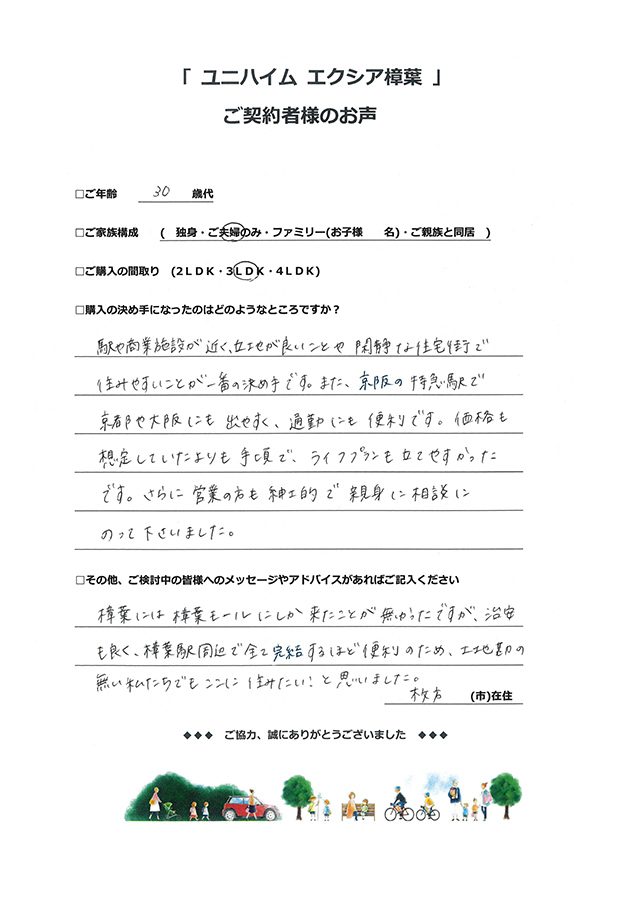 「 ユニハイム エクシア樟葉 」
ご契約者様のお声
□ご年齢 30 歳代
□ご家族構成 ( 独身・ご夫婦のみ・ファミリー(お子様 名)・ご親族と同居 )
□ご購入の間取り (2LDK・3LDK・4LDK)
□購入の決め手になったのはどのようなところですか？
駅や商業施設が近く、立地が良いことや 閑静な住宅街で
住みやすいことが一番の決め手です。また、京阪の特急駅で
京都や大阪にも出やすく、通勤にも便利です。価格も
想定していたよりも手頃で、ライフプランも立てやすかった
です。さらに営業の方も紳士的で親身に相談に
のって下さいました。
□その他、ご検討中の皆様へのメッセージやアドバイスがあればご記入ください
樟葉には樟葉モールにしか来たことが無かったですが、治安
も良く、樟葉駅周辺で全て完結するほど便利のため、土地勘の
無い私たちでもここに住みたい！と思いました。
枚方 (市)在住
◆◆◆ ご協力、誠にありがとうございました ◆◆◆